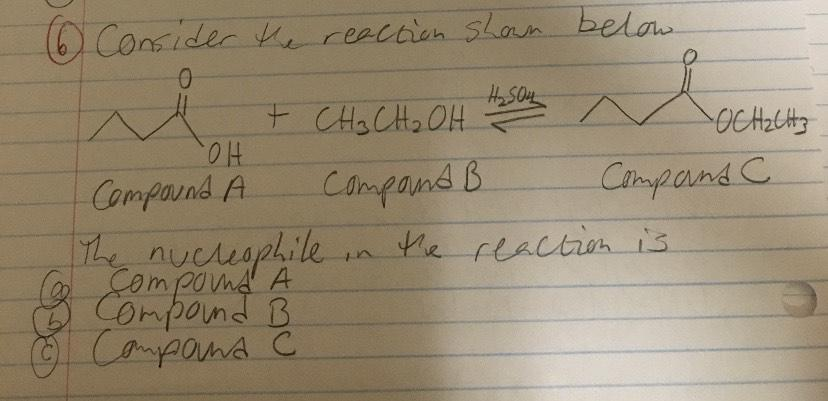 6 Consider the reaction shown below
O
O
+ CH3CH2OH H2SO4
OH
OCH2CH3
Compound A Compound B Compound C
The nucleophile in the reaction is
a Compound A
b Compound B
c Compound C